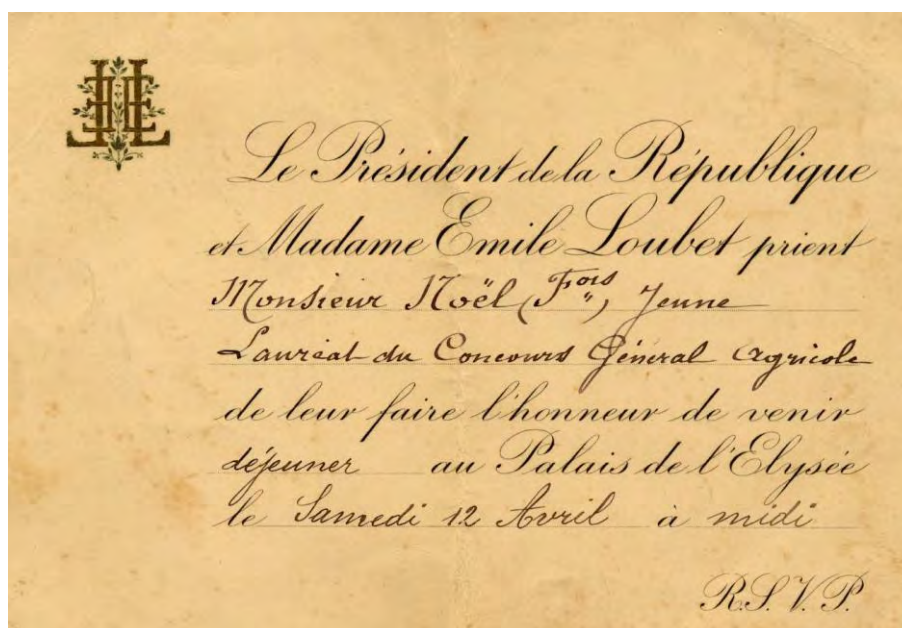 Le Président de la République
et Madame Emile Loubet prient
Monsieur Noël (Fois), Jeune
Lauréat du Concours Général Agricole
de leur faire l'honneur de venir
déjeuner au Palais de l'Elysée
le Samedi 12 Avril à midi
R.S.V.P.